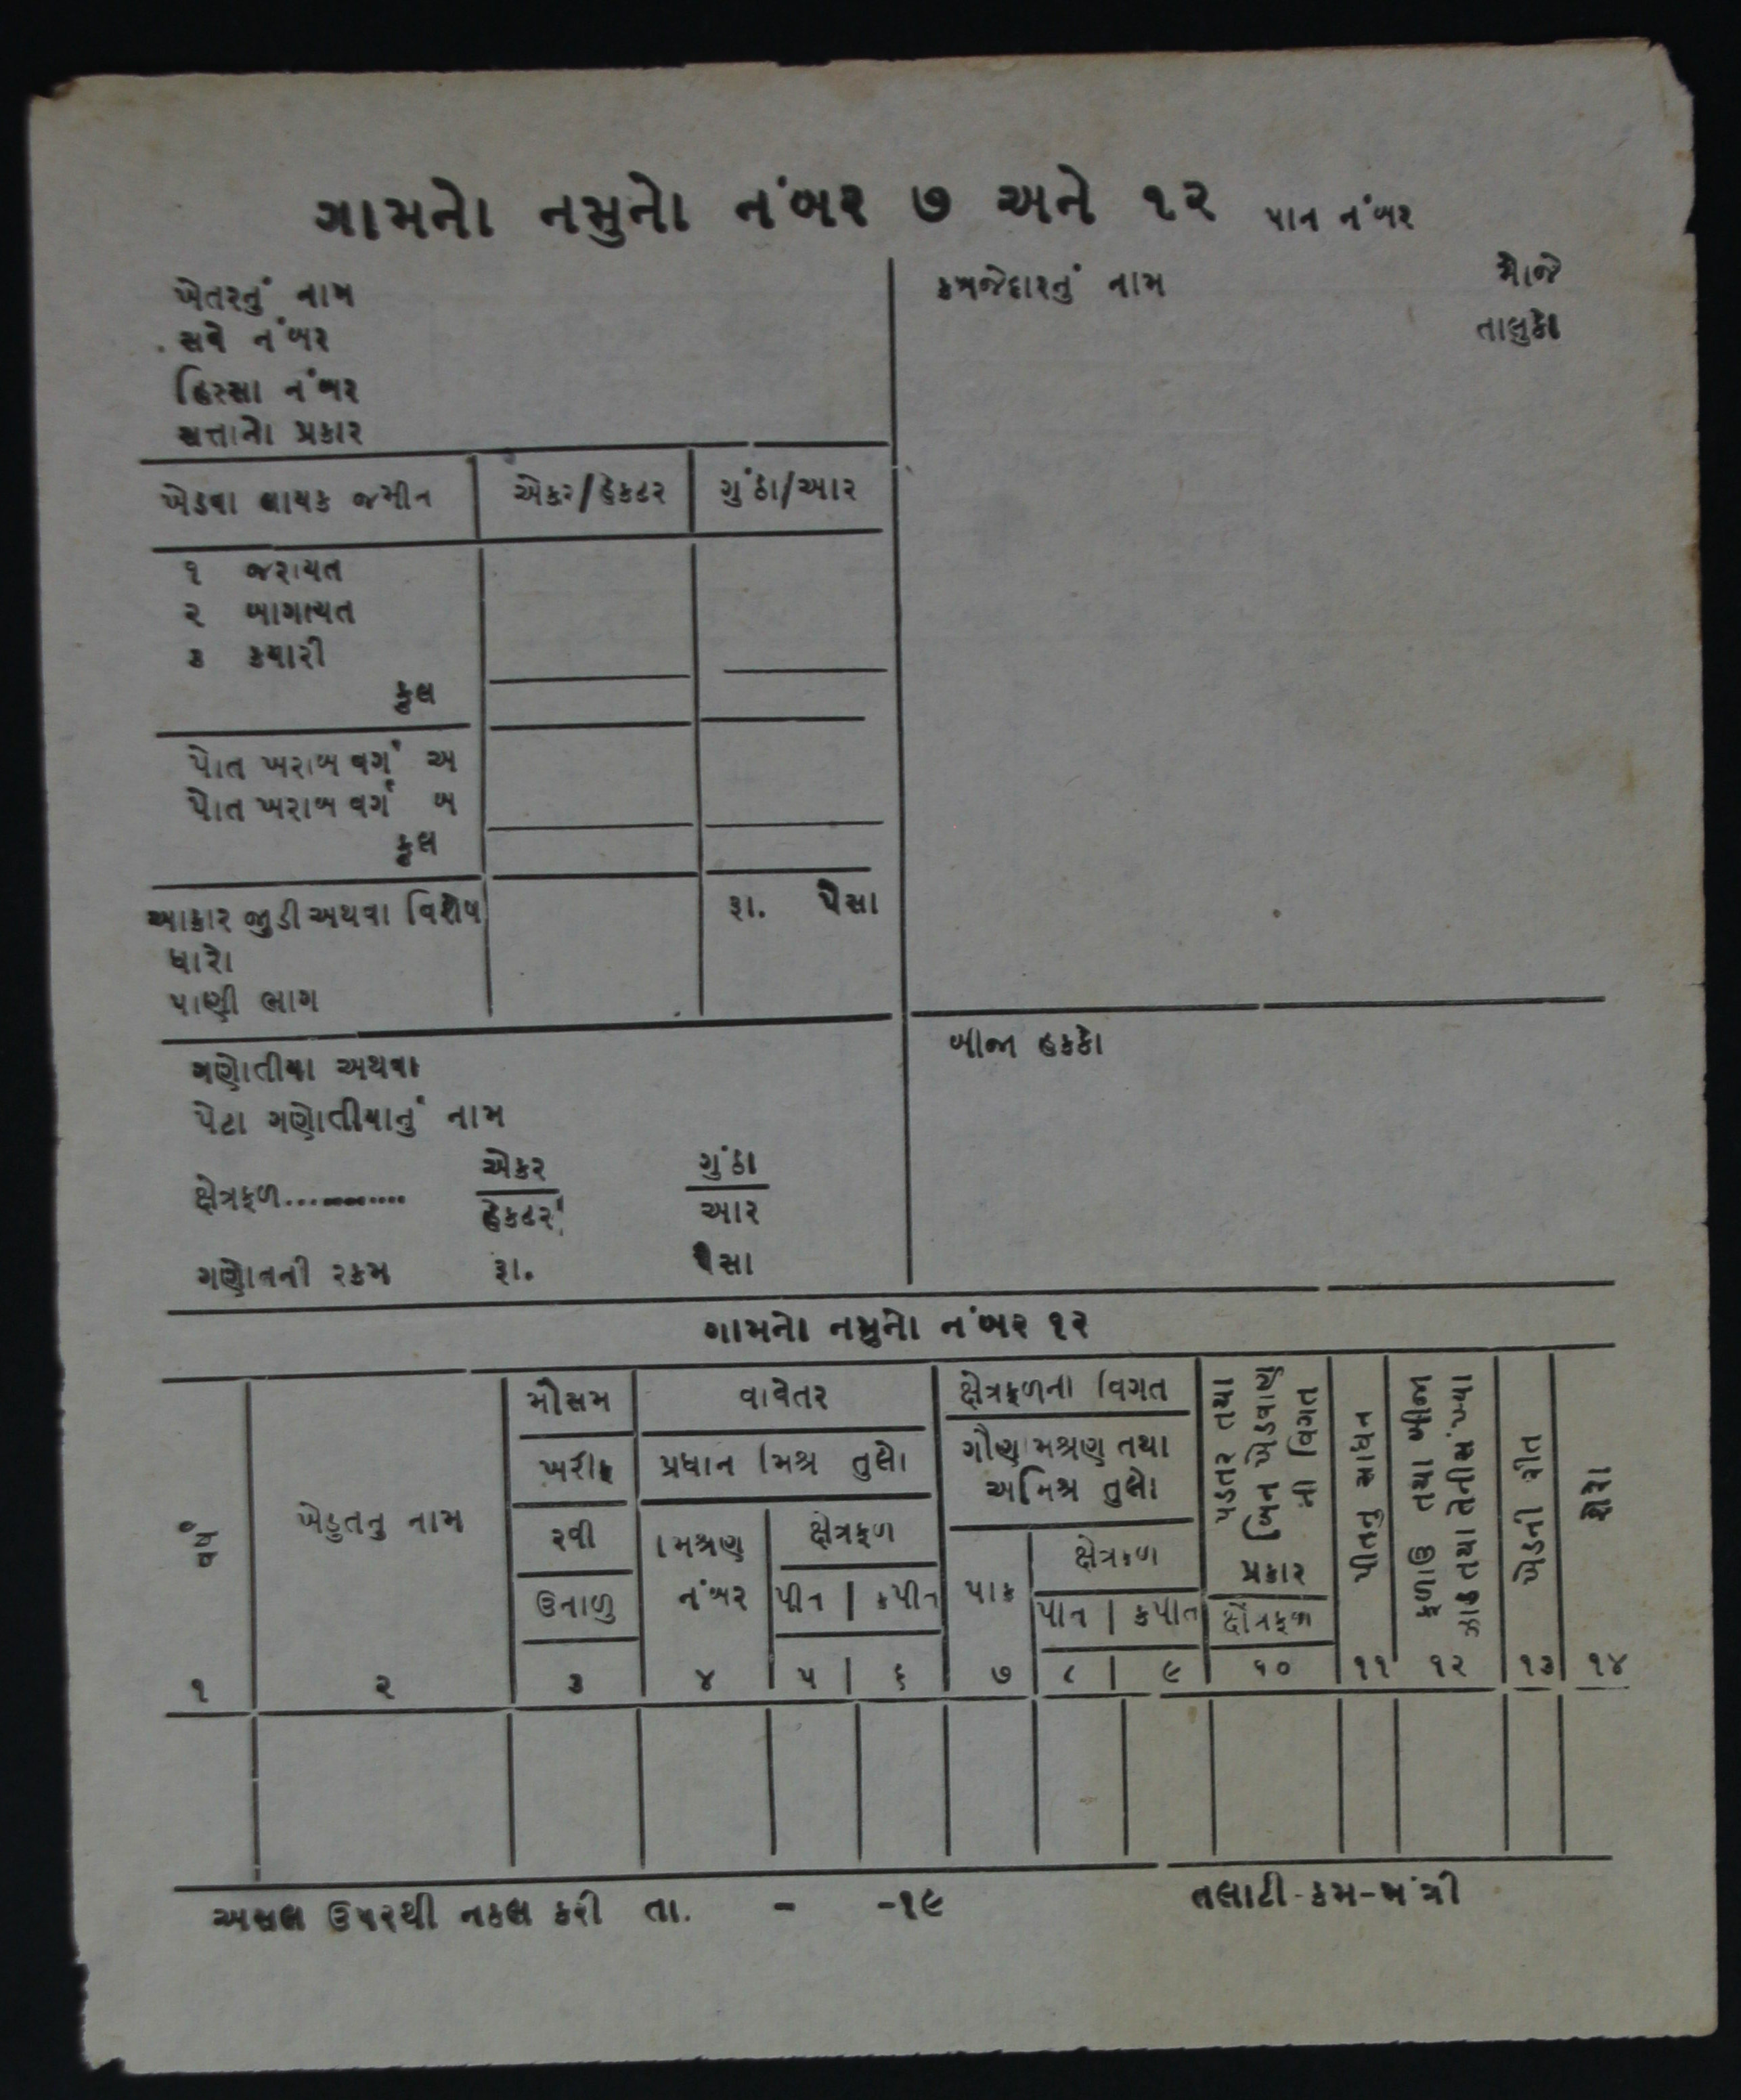 ગામનો નમુનો નંબર ૭ અને ૧૨ પાન નંબર
ખેતરનું નામ
સર્વે નંબર
હિસ્સા નંબર
સત્તાનો પ્રકાર
કબજેદારનું નામ
મોજે
તાલુકો
ખેડવા લાયક જમીન એકર/હેકટર ગુંઠા/આર
૧ જરાયત
૨ બાગાયત
૩ કયારી
કુલ
પોત ખરાબ વર્ગ અ
પોત ખરાબ વર્ગ બ
કુલ
આકાર જુડી અથવા વિશેષ રૂા. પૈસા
ધારો
પાણી ભાગ
ગણોતીયા અથવા
પેટા ગણોતીયાનું નામ
ક્ષેત્રફળ............ એકર ગુંઠા
હેકટર આર
ગણોતની રકમ રૂા. પૈસા
બીજા હકકો
ગામનો નમુનો નંબર ૧૨
વર્ષ
ખેડુતનુ નામ
મૌસમ
ખરીફ
રવી
ઉનાળુ
વાવેતર
પ્રધાન મિશ્ર તુલો
મિશ્રણ
નંબર
ક્ષેત્રફળ
પીત | કપીત
ક્ષેત્રફળના વિગત
ગૌણ મિશ્રણ તથા
અમિશ્ર તુલો
પાક
ક્ષેત્રફળ
પીત | કપીત
પડતર તથા
બિન ખેડવાણ
ની વિગત
પ્રકાર
ક્ષેત્રફળ
પીતનુ સાધન
ફળાઉ તથા બીજા
ઝાડ તથા તેની સંખ્યા
ખેડની રીત
શેરો
૧ ૨ ૩ ૪ ૫ ૬ ૭ ૮ ૯ ૧૦ ૧૧ ૧૨ ૧૩ ૧૪
અસલ ઉપરથી નકલ કરી તા. - -૧૯
તલાટી-કમ-મંત્રી